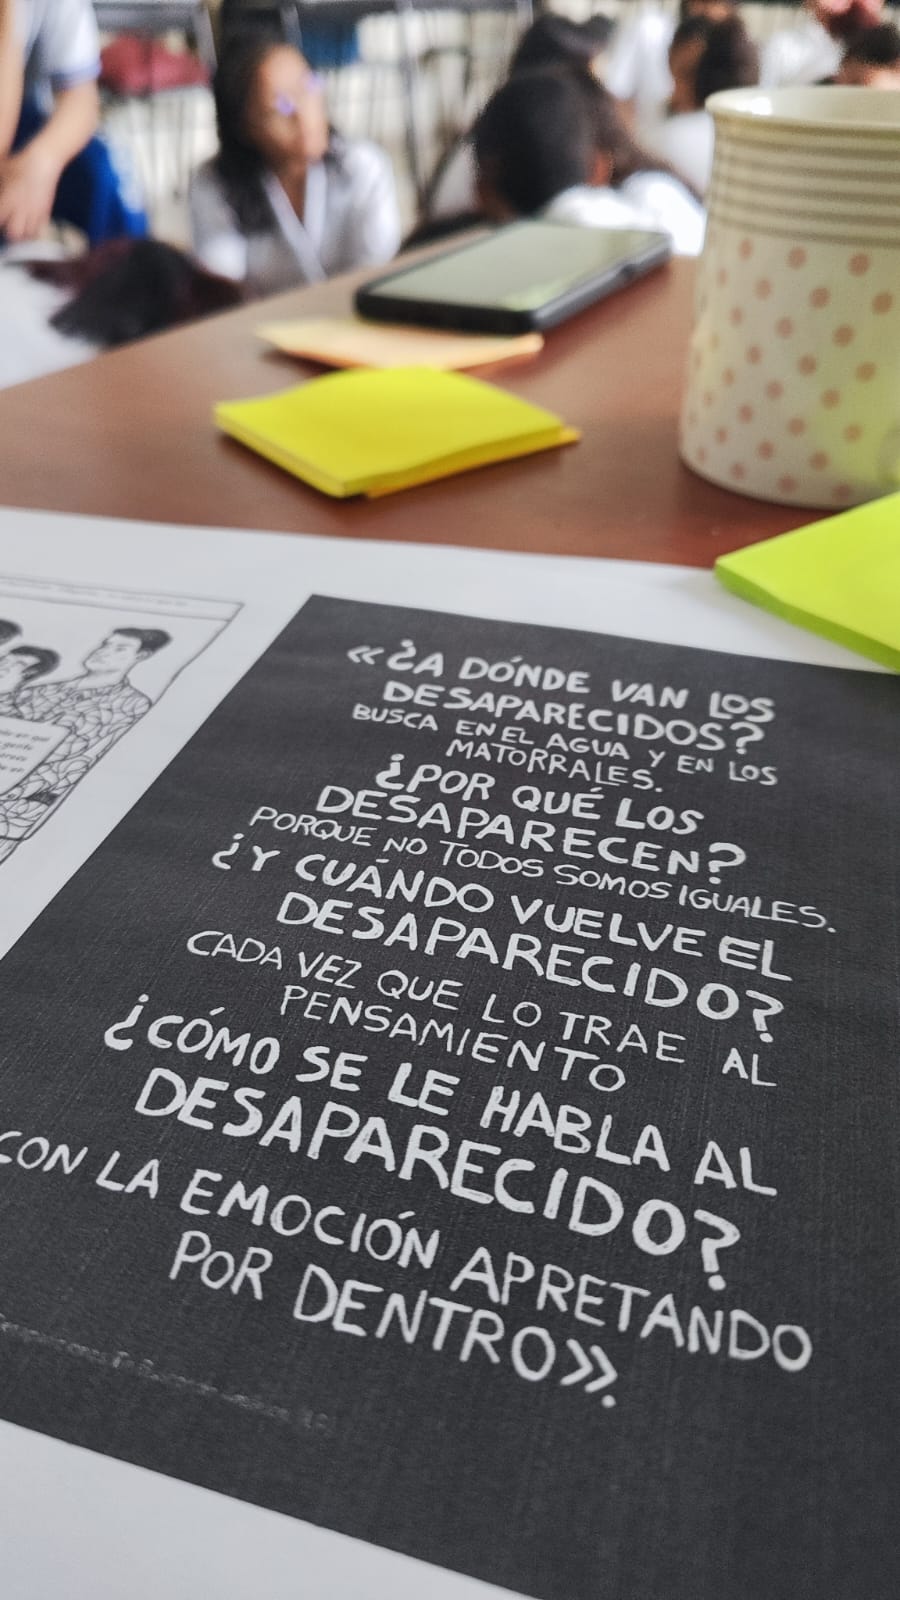 «¿A DÓNDE VAN LOS
DESAPARECIDOS?
BUSCA EN EL AGUA Y EN LOS
MATORRALES.
¿POR QUÉ LOS
DESAPARECEN?
PORQUE NO TODOS SOMOS IGUALES.
¿Y CUÁNDO VUELVE EL
DESAPARECIDO?
CADA VEZ QUE LO TRAE AL
PENSAMIENTO
¿CÓMO SE LE HABLA AL
DESAPARECIDO?
CON LA EMOCIÓN APRETANDO
POR DENTRO».